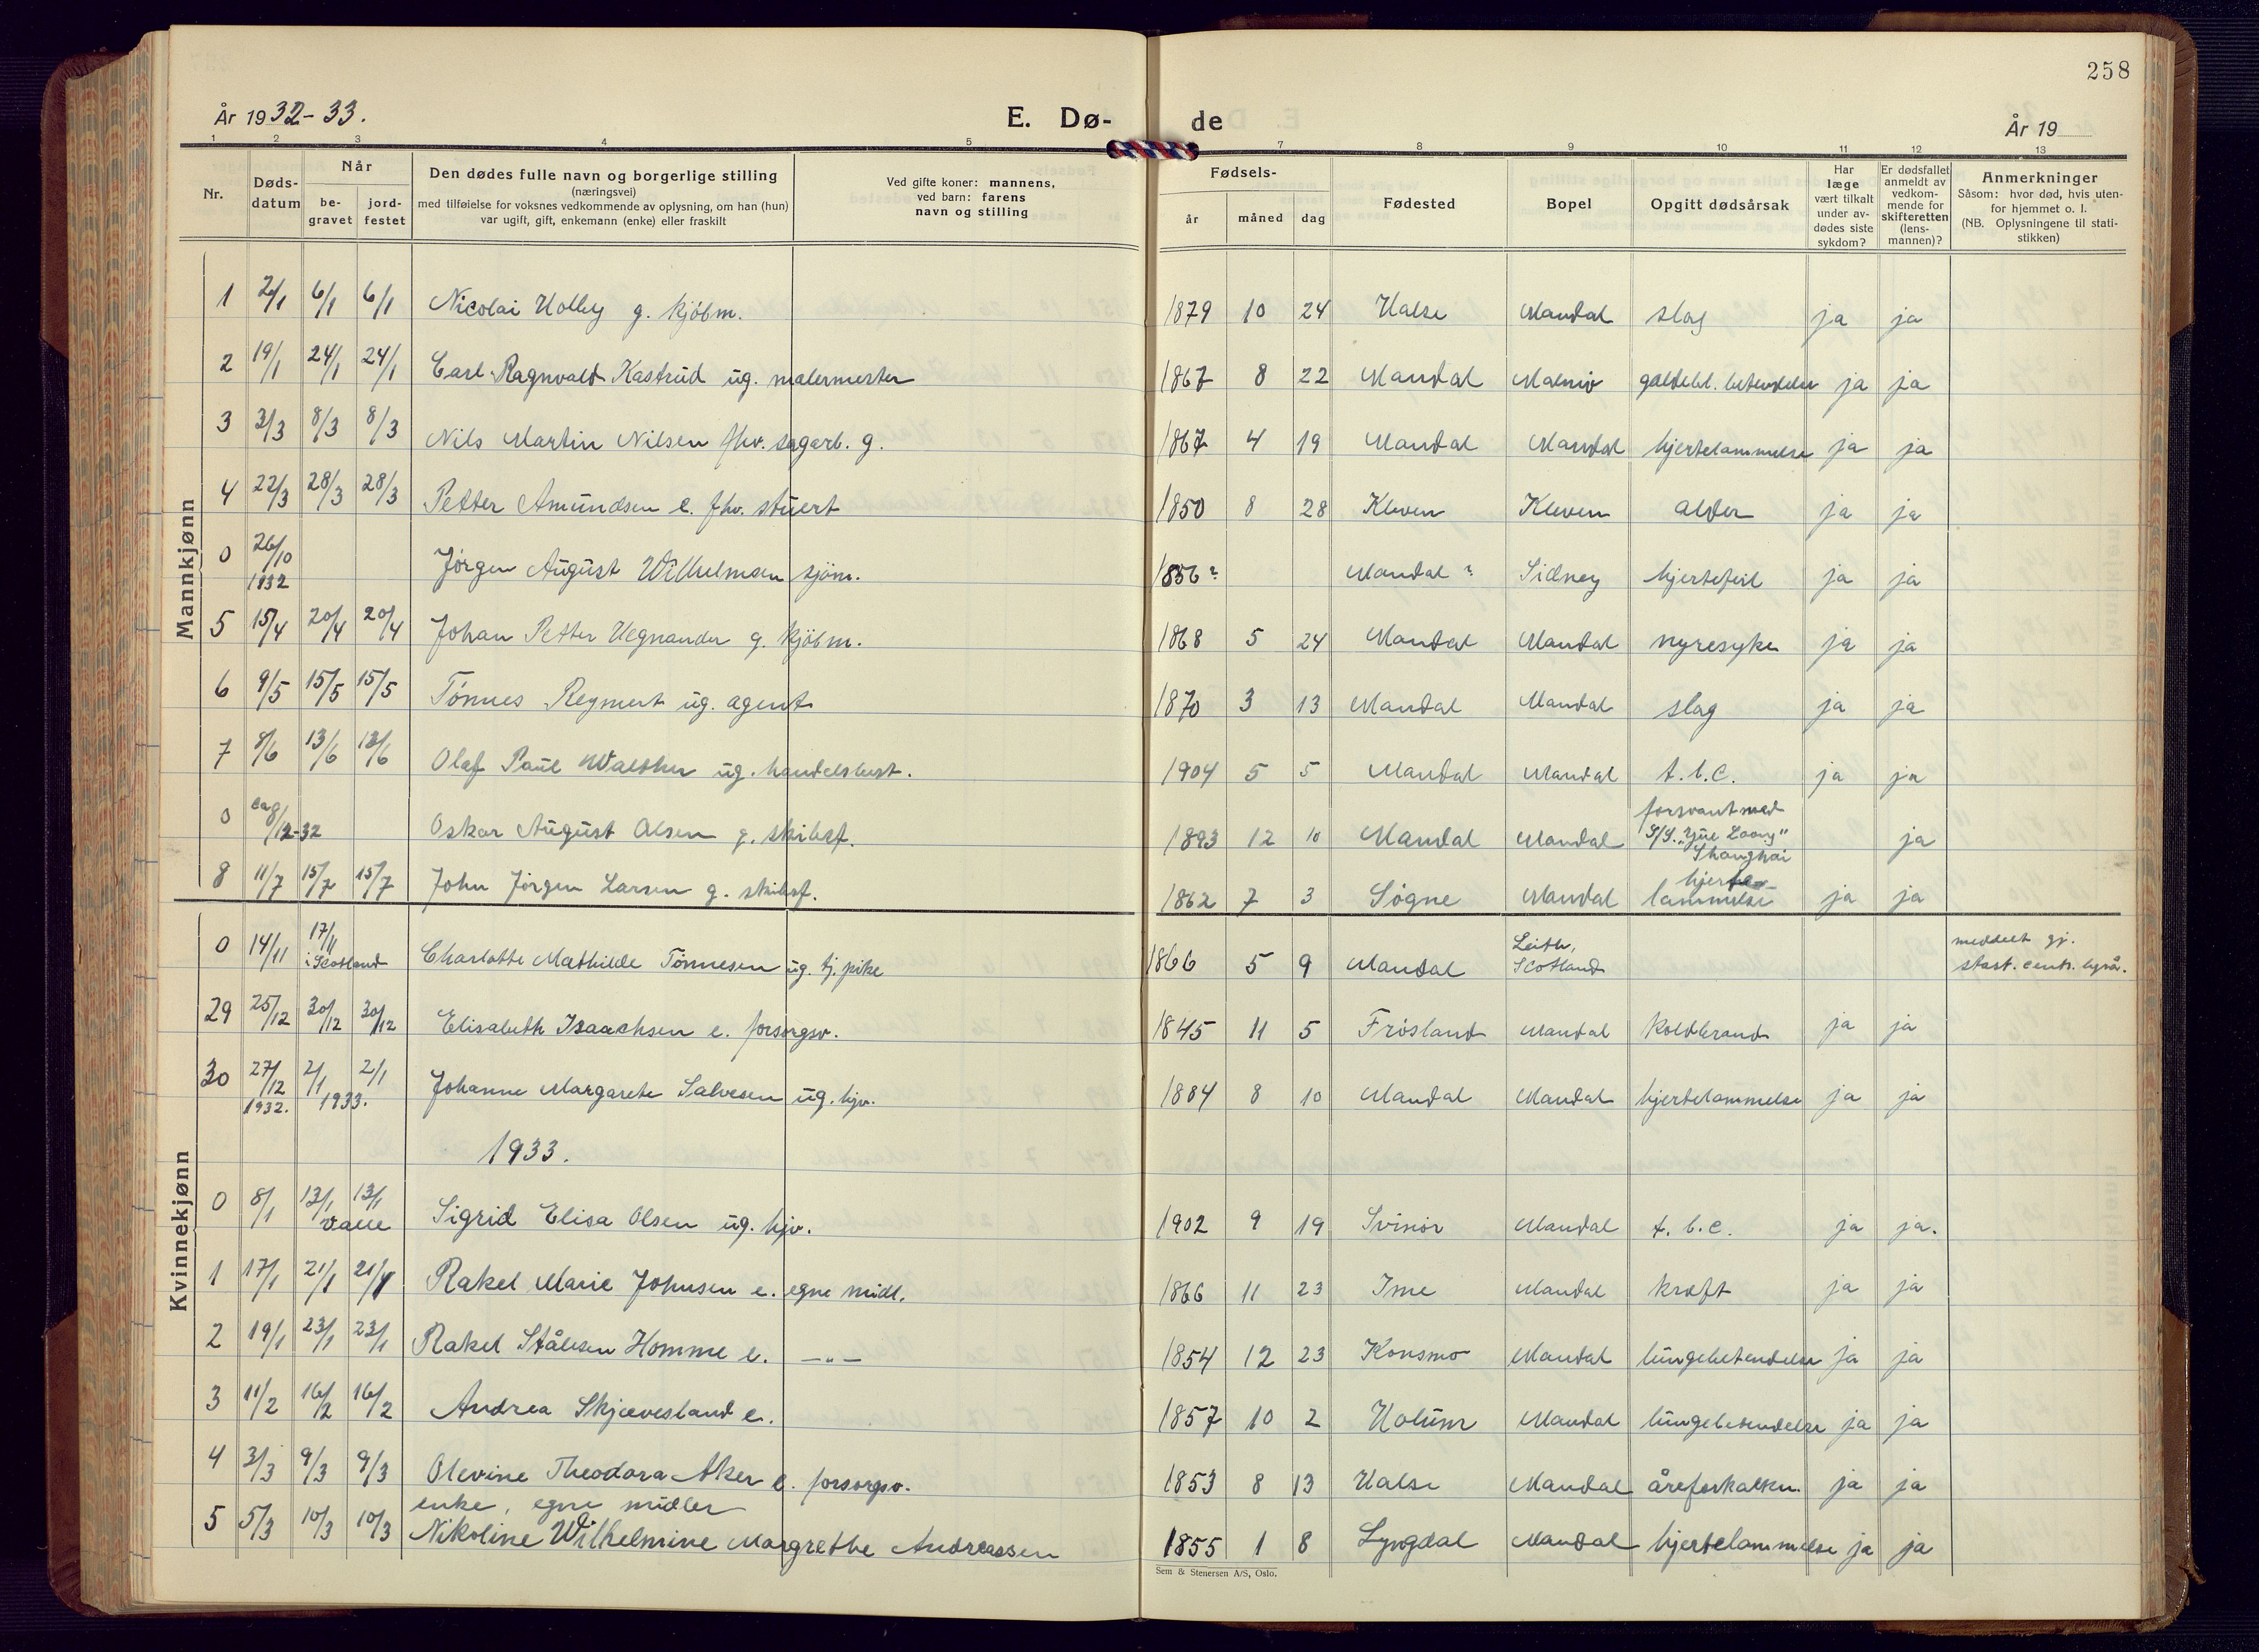 258
År 1932-33.
E. Dø-
de
År 19
1 2 3 4 5 7 8 9 10 11 12 13
Nr.
Dødsdatum
Når
begravet
jordfestet
Den dødes fulle navn og borgerlige stilling
(næringsvei)
med tilføielse for voksnes vedkommende av oplysning, om han (hun)
var ugift, gift, enkemann (enke) eller fraskilt
Ved gifte koner: mannens,
ved barn: farens
navn og stilling
Fødsels-
år
måned
dag
Fødested
Bopel
Opgitt dødsårsak
Har
læge
vært tilkalt
under av-
dødes siste
sykdom?
Er dødsfallet
anmeldt av
vedkom-
mende for
skifteretten
(lens-
mannen)?
Anmerkninger
Såsom: hvor død, hvis uten-
for hjemmet o. l.
(NB. Oplysningene til stati-
stikken)
Mannkjønn
1 2/1 6/1 6/1 Nicolai Holby g. kjöbm. 1879 10 24 Halse Mandal slag ja ja
2 19/1 24/1 24/1 Carl Ragnvald Kastrud ug. malermester 1867 8 22 Mandal Malmö galdebl. betendelse ja ja
3 3/3 8/3 8/3 Nils Martin Nilsen fhv. sagarb. g. 1867 4 19 Mandal Mandal hjertelammelse ja ja
4 22/3 28/3 28/3 Petter Amundsen e. fhv. stuert 1850 8 28 Kleven Kleven alder ja ja
0 26/10 1932 Jörgen August Wilhelmsen sjöm. 1856? Mandal? Sidney hjertefeil ja ja
5 15/4 20/4 20/4 Johan Petter Hegnander g. kjöbm. 1868 5 24 Mandal Mandal nyresyke ja ja
6 9/5 15/5 15/5 Tönnes Reymert ug. agent 1870 3 13 Mandal Mandal slag ja ja
7 8/6 13/6 13/6 Olaf Paul Walther ug. handelsbest. 1904 5 5 Mandal Mandal t.b.c. ja ja
0 ca 8/12-32 Oskar August Olsen g. skibsf. 1893 12 10 Mandal Mandal forsvant med S/S. "Yue Loong" Shanghai ja
8 11/7 15/7 15/7 John Jörgen Larsen g. skibsf. 1862 7 3 Sögne Mandal hjerte- lammelse ja ja
Kvinnekjønn
0 14/11 17/11 i Scotland Charlotte Mathilde Tönnesen ug. tj. pike 1866 5 9 Mandal Leith, Scotland meddelt gj. stat. centr. byrå.
29 25/12 30/12 30/12 Elisabeth Isaachsen e. forsorgsv. 1845 11 5 Frösland Mandal Koldbrand ja ja
30 27/12 1932. 2/1 2/1 1933. Johanne Margarete Salvesen ug. hjv. 1884 8 10 Mandal Mandal hjertelammelse ja ja
1933.
0 8/1 13/1 13/1 Valle Sigrid Elisa Olsen ug. hjv. 1902 9 19 Svinör Mandal t.b.c. ja ja.
1 17/1 21/1 21/1 Rakel Marie Johnsen e. egne midl. 1866 11 23 Ime Mandal kræft ja ja
2 19/1 23/1 23/1 Rakel Stålesen Homme e. —"— 1854 12 23 Konsmo Mandal lungebetendelse ja ja
3 11/2 16/2 16/2 Andrea Skjævesland e. 1857 10 2 Holum Mandal lungebetendelse ja ja
4 3/3 9/3 9/3 Olevine Theodora Aker e. forsorgsv. 1853 8 13 Halse Mandal åreforkalkn. ja ja
enke, egne midler
5 5/3 10/3 10/3 Nikoline Wilhelmine Margrethe Andreassen 1855 1 8 Lyngdal Mandal hjertelammelse ja ja
Sem & Stenersen A/S, Oslo.